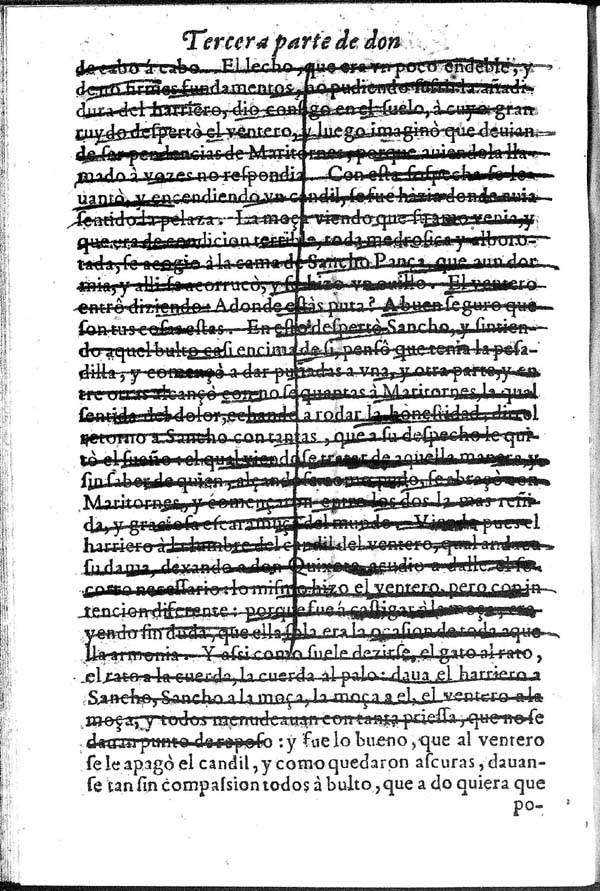 Tercera parte de don
de cabo á cabo. El lecho, que era vn poco endeble, y
de no firmes fundamentos, no pudiendo sufrir la añadi-
dura del harriero, dio consigo en el suelo, à cuyo gran
ruydo despertò el ventero, y luego imaginò que deuian
de ser pendencias de Maritornes, porque auiendola lla-
mado à vozes no respondia. Con esta sospecha se le-
uantò, y encendiendo vn candil, se fue hazia donde auia
sentido la pelaza. La moça viendo que su amo venia, y
que era de condicion terrible, toda medrosica y alboro-
tada, se acogio à la cama de Sancho Pança, que aun dor
mia, y alli se acorrucò, y se hizo vn ouillo. El ventero
entrô diziendo: Adonde estàs puta? A buen seguro que
son tus cosas estas. En esto despertò Sancho, y sintien-
do aquel bulto casi encima de si, pensò que tenia la pesa-
dilla, y començò a dar puñadas a vna, y otra parte, y en
tre otras alcançò con no se quantas à Maritornes, la qual
sentida del dolor, echando a rodar la honestidad, dio el
retorno a Sancho con tantas, que a su despecho le qui-
tò el sueño: el qual viendose tratar de aquella manera, y
sin saber de quien, alçandose como pudo, se abraçò con
Maritornes, y començaron entre los dos la mas reñi-
da, y graciosa escaramuça del mundo. Viendo pues el
harriero à la lumbre del candil del ventero, qual andaua
su dama, dexando a don Quixote, acudio a dalle el so-
corro necessario: lo mismo hizo el ventero, pero con in
tencion diferente: porque fue á castigar à la moça, cre
yendo sin duda, que ella sola era la ocasion de toda aque
lla armonia. Y assi como suele dezirse, el gato al rato,
el rato a la cuerda, la cuerda al palo: daua el harriero a
Sancho, Sancho a la moça, la moça a el, el ventero a la
moça, y todos menudeauan con tanta priessa, que no se
dauan punto de reposo: y fue lo bueno, que al ventero
se le apagò el candil, y como quedaron ascuras, dauan-
se tan sin compassion todos à bulto, que a do quiera que
po-